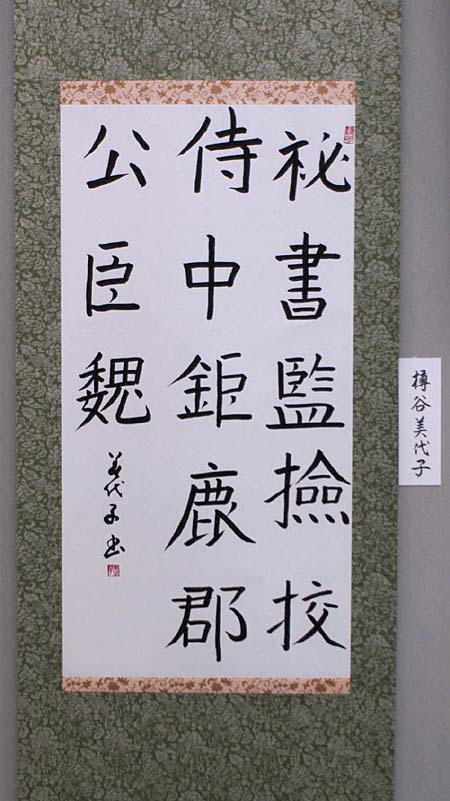 祕書監撿挍
侍中鉅鹿郡
公臣魏
美代子書
樽谷美代子